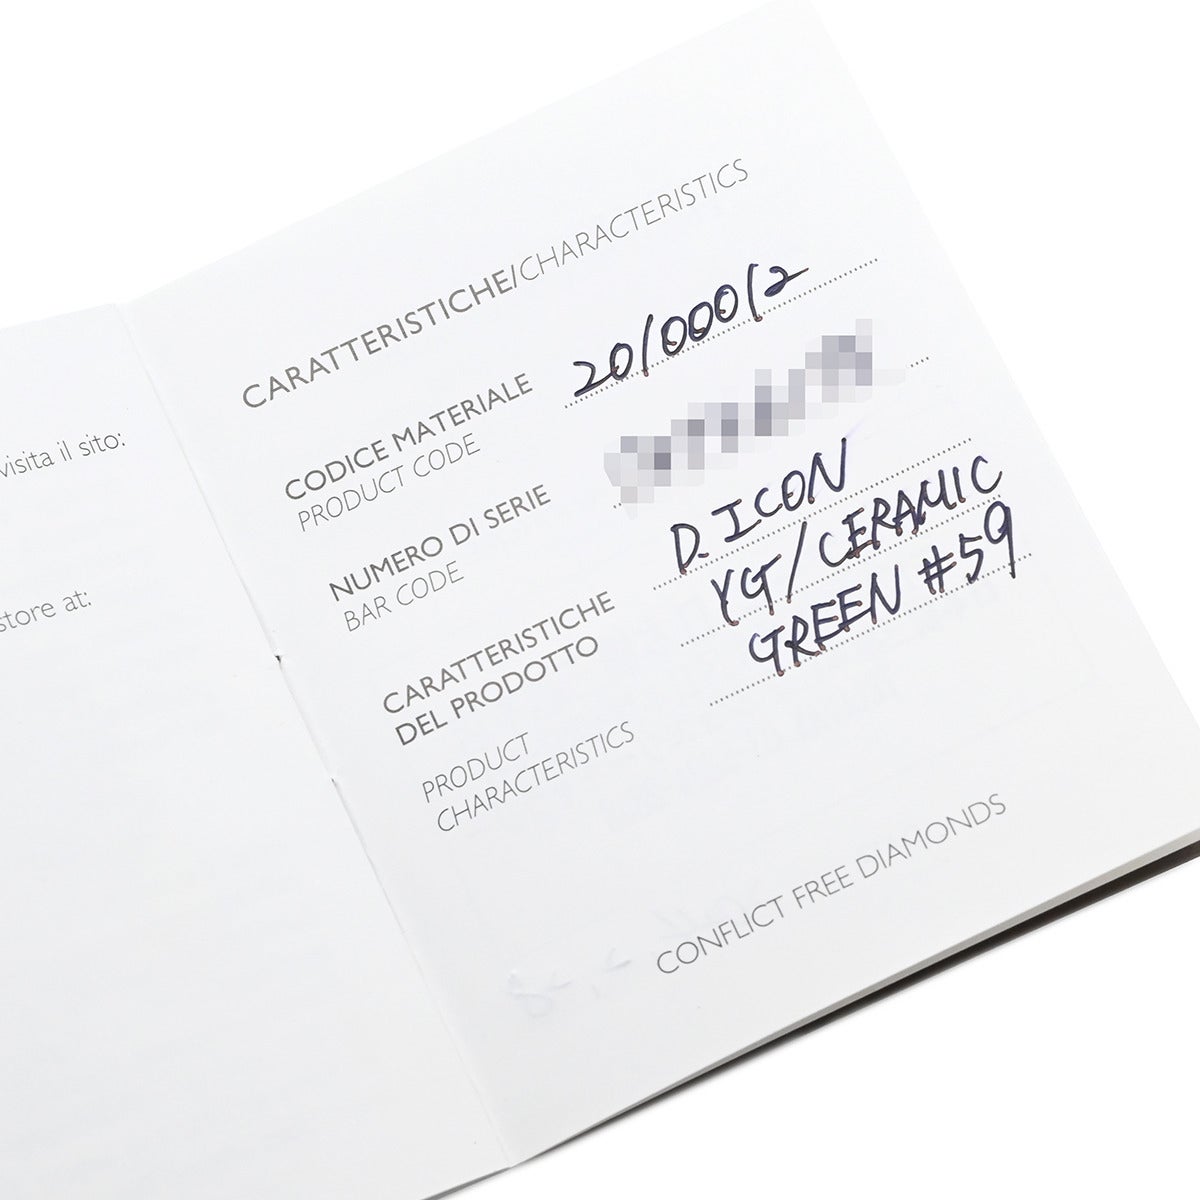 visita il sito:
store at:
CARATTERISTICHE/CHARACTERISTICS
CODICE MATERIALE
PRODUCT CODE
20/000/2
NUMERO DI SERIE
BAR CODE
CARATTERISTICHE
DEL PRODOTTO
PRODUCT
CHARACTERISTICS
D.ICON
YG/CERAMIC
GREEN #59
CONFLICT FREE DIAMONDS